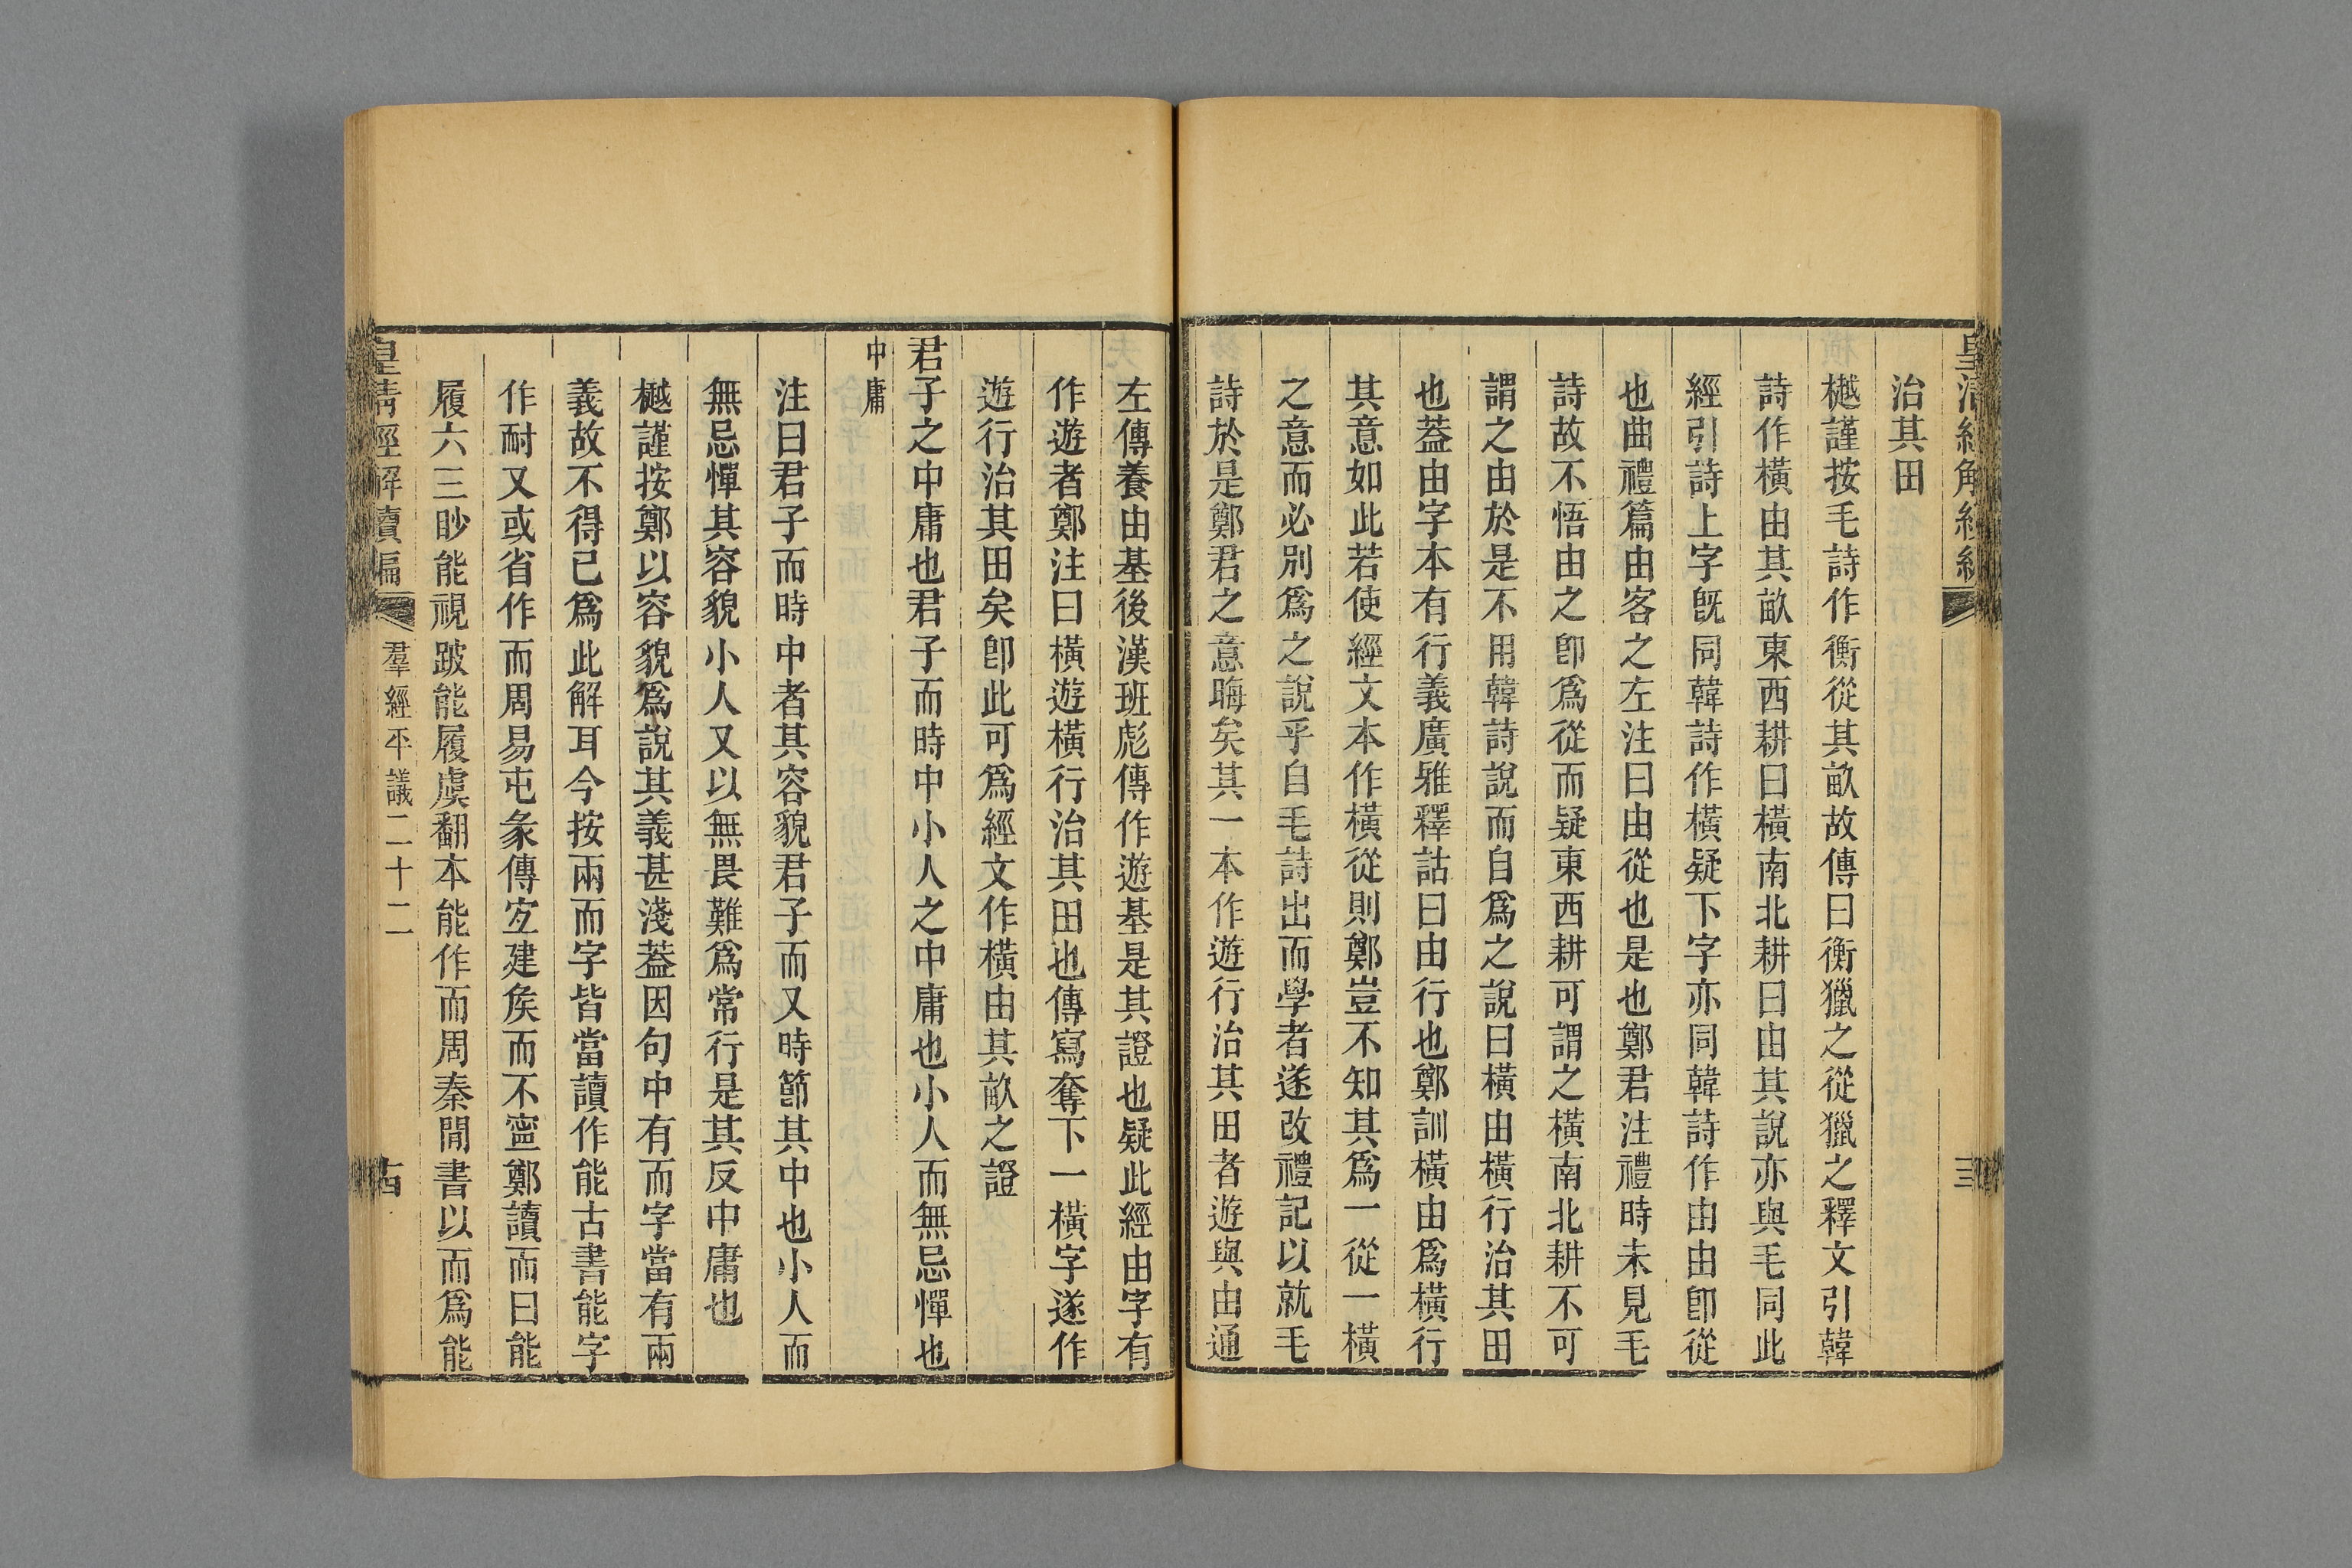 治其田
樾謹按毛詩作衡從其畝故傳曰衡獵之從獵之釋文引韓
詩作橫由其畝東西耕曰橫南北耕曰由其說亦與毛同此
經引詩上字旣同韓詩作橫疑下字亦同韓詩作由由卽從
也曲禮篇由客之左注曰由從也是也鄭君注禮時未見毛
詩故不悟由之卽爲從而疑東西耕可謂之橫南北耕不可
謂之由於是不用韓詩說而自爲之說曰橫由橫行治其田
也蓋由字本有行義廣雅釋詁曰由行也鄭訓橫由爲橫行
其意如此若使經文本作橫從則鄭豈不知其爲一從一橫
之意而必別爲之說乎自毛詩出而學者遂改禮記以就毛
詩於是鄭君之意晦矣其一本作遊行治其田者遊與由通
左傳養由基後漢班彪傳作遊基是其證也疑此經由字有
作遊者鄭注曰橫遊橫行治其田也傳寫奪下一橫字遂作
遊行治其田矣卽此可爲經文作橫由其畝之證
君子之中庸也君子而時中小人之中庸也小人而無忌憚也
中庸
注曰君子而時中者其容貌君子而又時節其中也小人而
無忌憚其容貌小人又以無畏難爲常行是其反中庸也
樾謹按鄭以容貌爲說其義甚淺蓋因句中有而字當有兩
義故不得已爲此解耳今按兩而字皆當讀作能古書能字
作耐又或省作而周易屯彖傳宐建矦而不寍鄭讀而曰能
履六三眇能視跛能履虞翻本能作而周秦閒書以而爲能
皇淸經解續編
羣經平議二十二
古